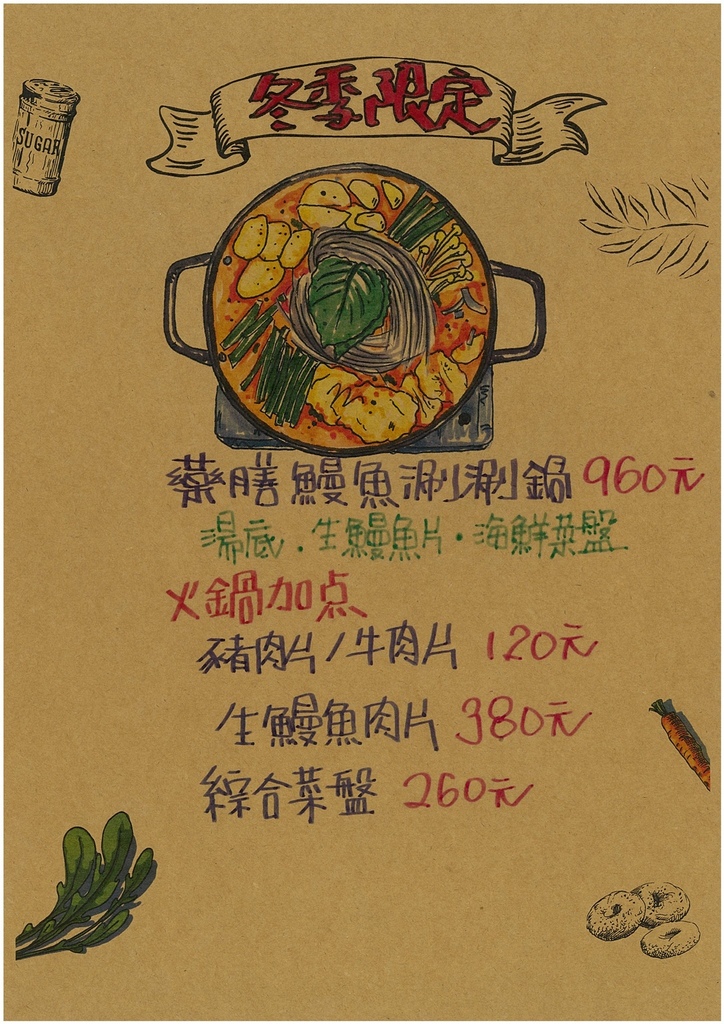 SUGAR
冬季限定
藥膳鰻魚涮涮鍋 960元
湯底．生鰻魚片．海鮮菜盤
火鍋加点
豬肉片/牛肉片 120元
生鰻魚肉片 380元
綜合菜盤 260元